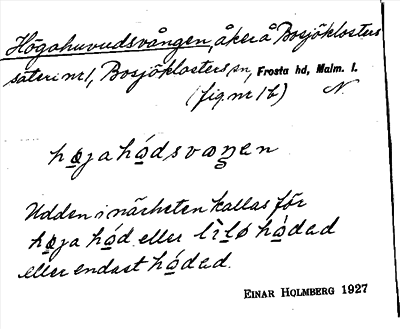 Högahuvudsvången, åker å Bosjöklosters
säteri nr 1, Bosjöklosters sn, Frosta hd, Malm. l.
(fig. nr 1b) N.
højahódsvaŋen
Udden i närheten kallas för
høja hód eller lilø hódad
eller endast hódad.
EINAR HOLMBERG 1927